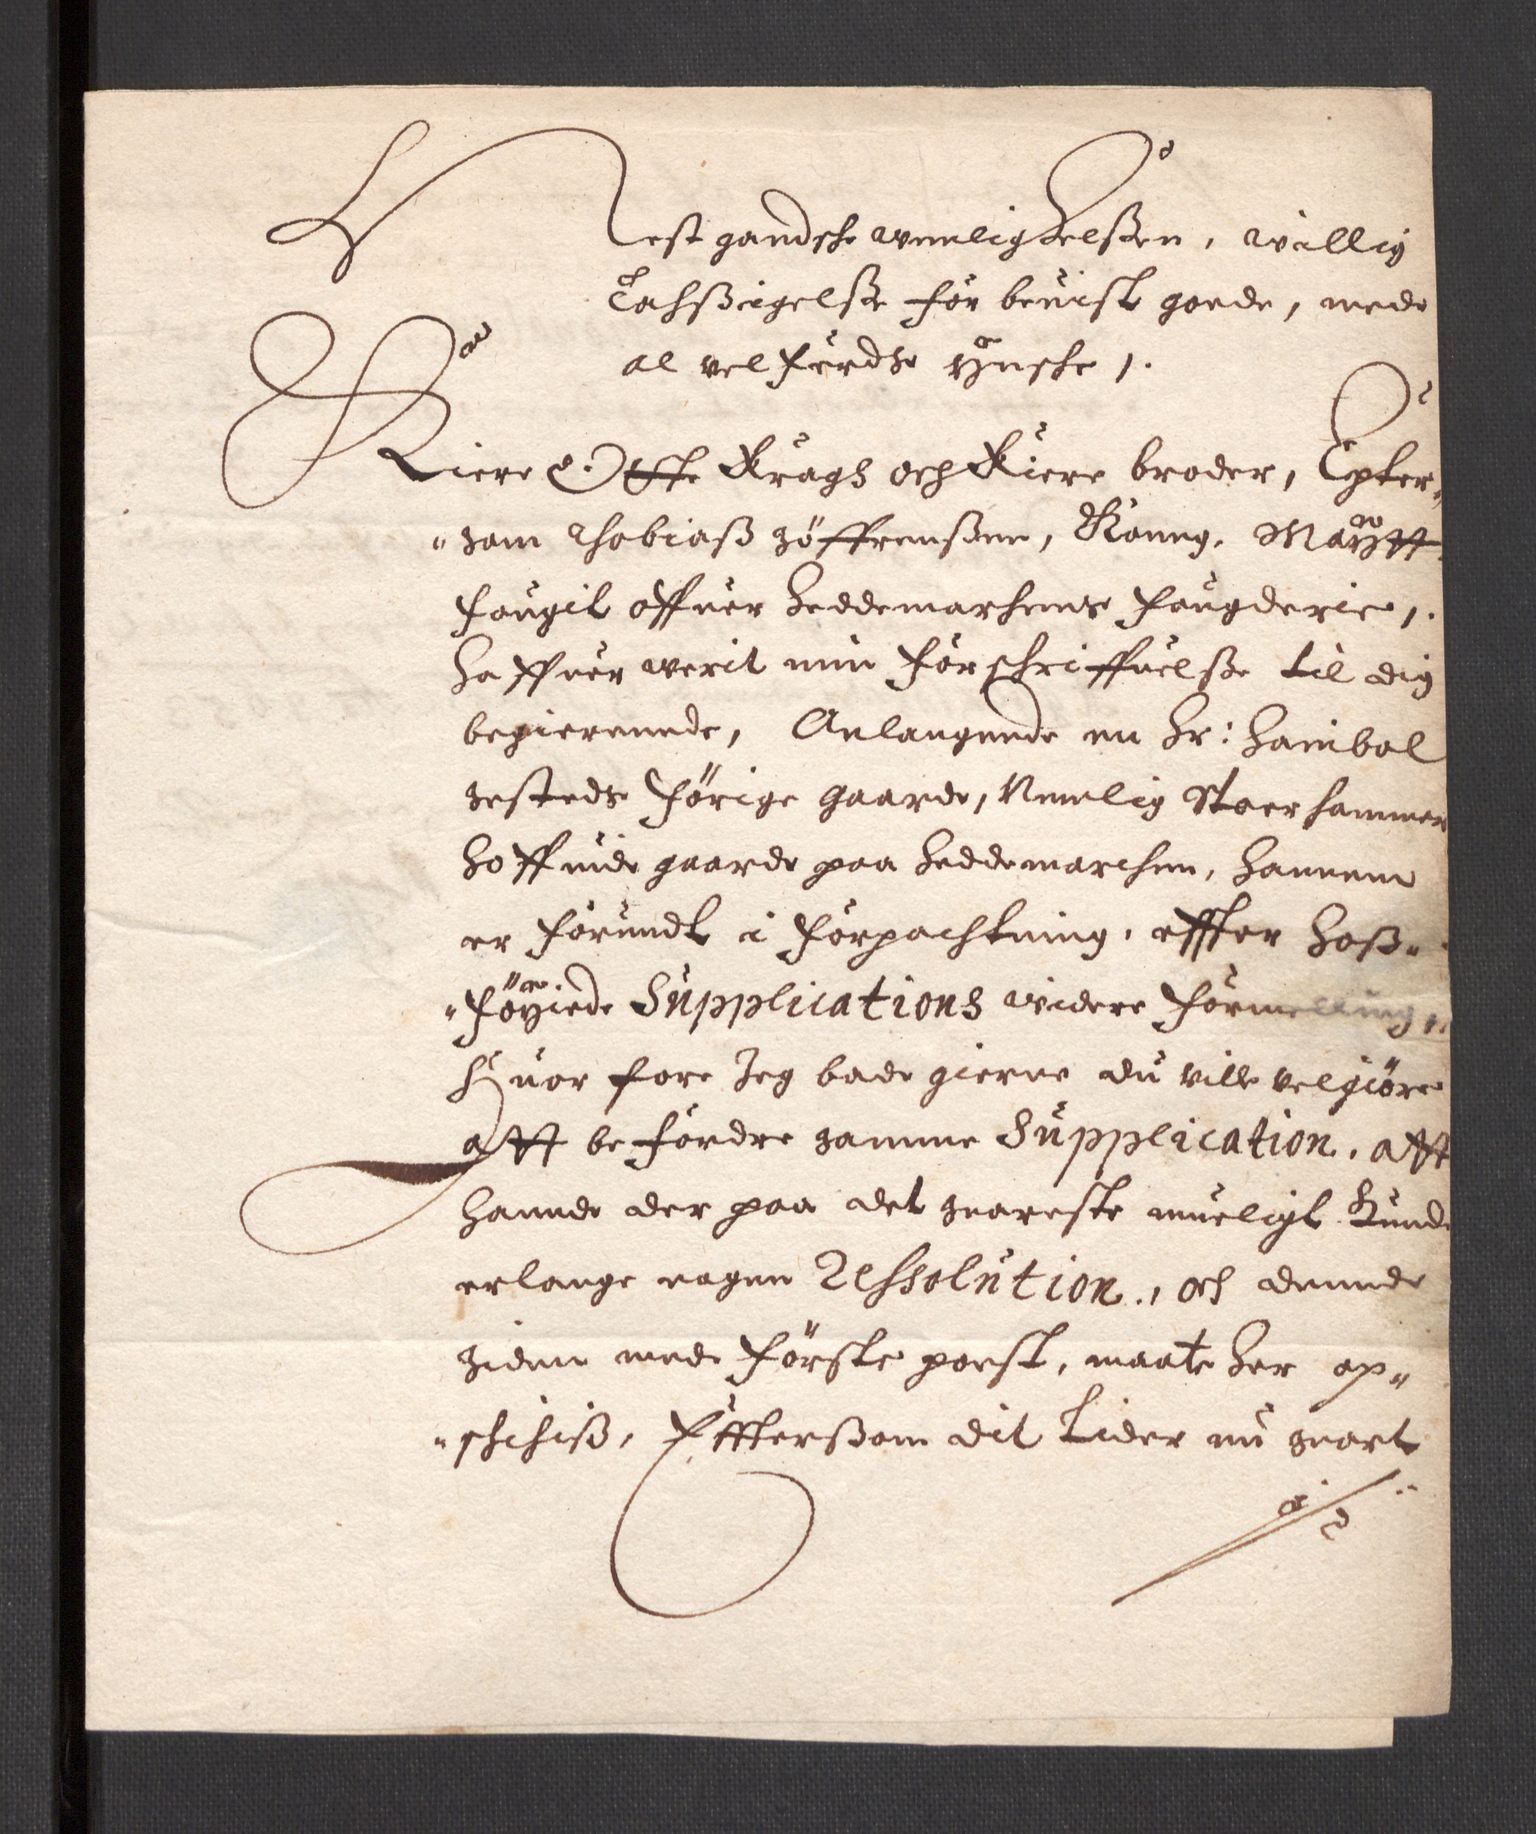 Nest gandsche wenligheldsen, willig
Tachsigelse för beuist goede, mede
al velferds ynsche /.
Kiere H. Otte Kragh och Kiere broder, Epter„
„som Thobiass Söffrenssen, Konng. Maytt
fougit offuer Heddemarchens fougderie,.
Haffuer werit min förschriffuelse til dig
begierennde, Anlangende en Hr: Hanibal
Sesteds förige gaarde, Nemlig Stoerhammer
Hoffuidgaarde paa Heddemarchen, Hannem
er förundt i förpachtning, effter Hoss„
„föyiede Supplications widere förmelding,.
Huor fore Jeg bade gierne du wille velgiöre
att befordre samme Supplication, att
Hannd der paa det snareste mueligt kunde
erlange nogen Ressolution., och dennd
siden med förste porst, maate her op„
„schichiss, Effterssom dit Lider nu snart